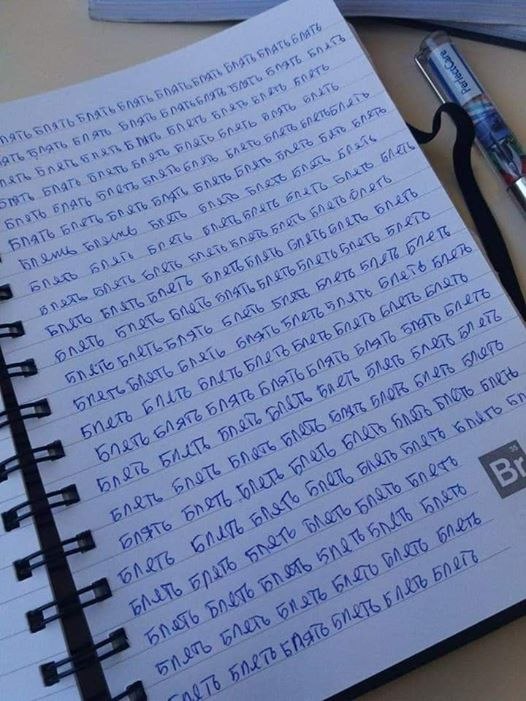 блять блять блять блять блять блять блять блять блять
блять блять блять блять блять блять блять блять блять
блять блять блять блять блять блять блять блять
блять блять блять блять блять блять блять блять
блять блять блять блять блять блять блять блять блять
блять блять блять блять блять блять блять блять блять
блять блять блять блять блять блять блять
блять блять блять блять блять блять блять блять
блять блять блять блять блять блять блять блять
блять блять блять блять блять блять блять блять
блять блять блять блять блять блять блять блять
блять блять блять блять блять блять блять блять
блять блять блять блять блять блять блять блять
блять блять блять блять блять блять блять блять
блять блять блять блять блять блять блять блять
блять блять блять блять блять блять блять блять
блять блять блять блять блять блять блять блять
блять блять блять блять блять блять блять блять
блять блять блять блять блять блять блять
блять блять блять блять блять блять
блять блять блять блять блять блять
блять блять блять блять блять блять
блять блять блять блять блять блять
35
Br
PerfectCare